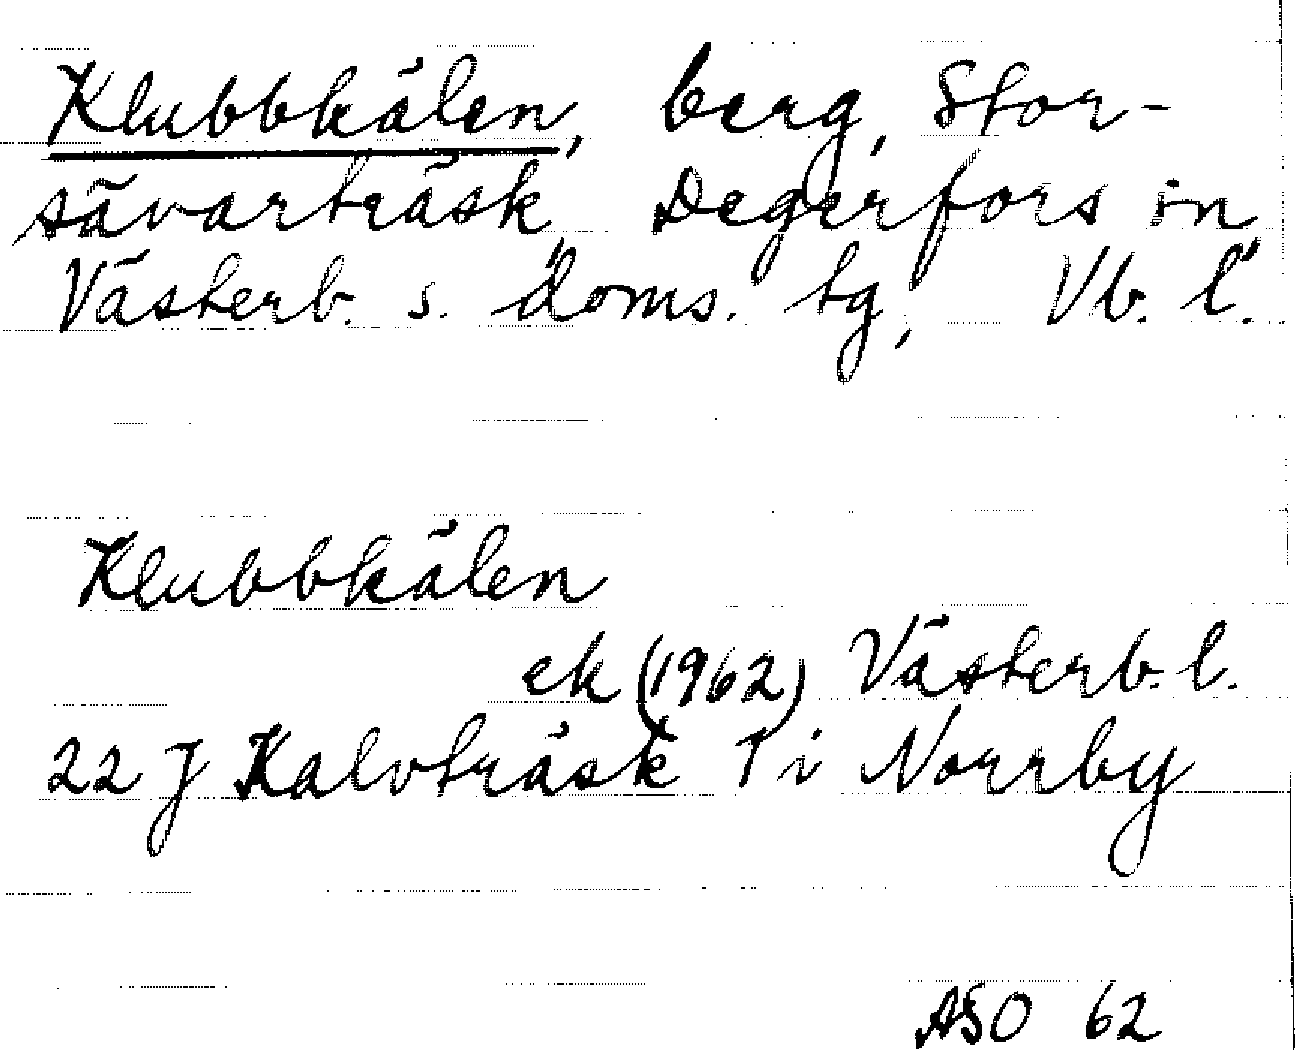 Klubbkälen, berg, Stor-
sävarträsk, Degerfors sn
Västerb. s. doms. tg, Vb. l.
Klubbkälen
ek (1962) Västerb. l.
22 J Kalvträsk i Norrby
ASO 62